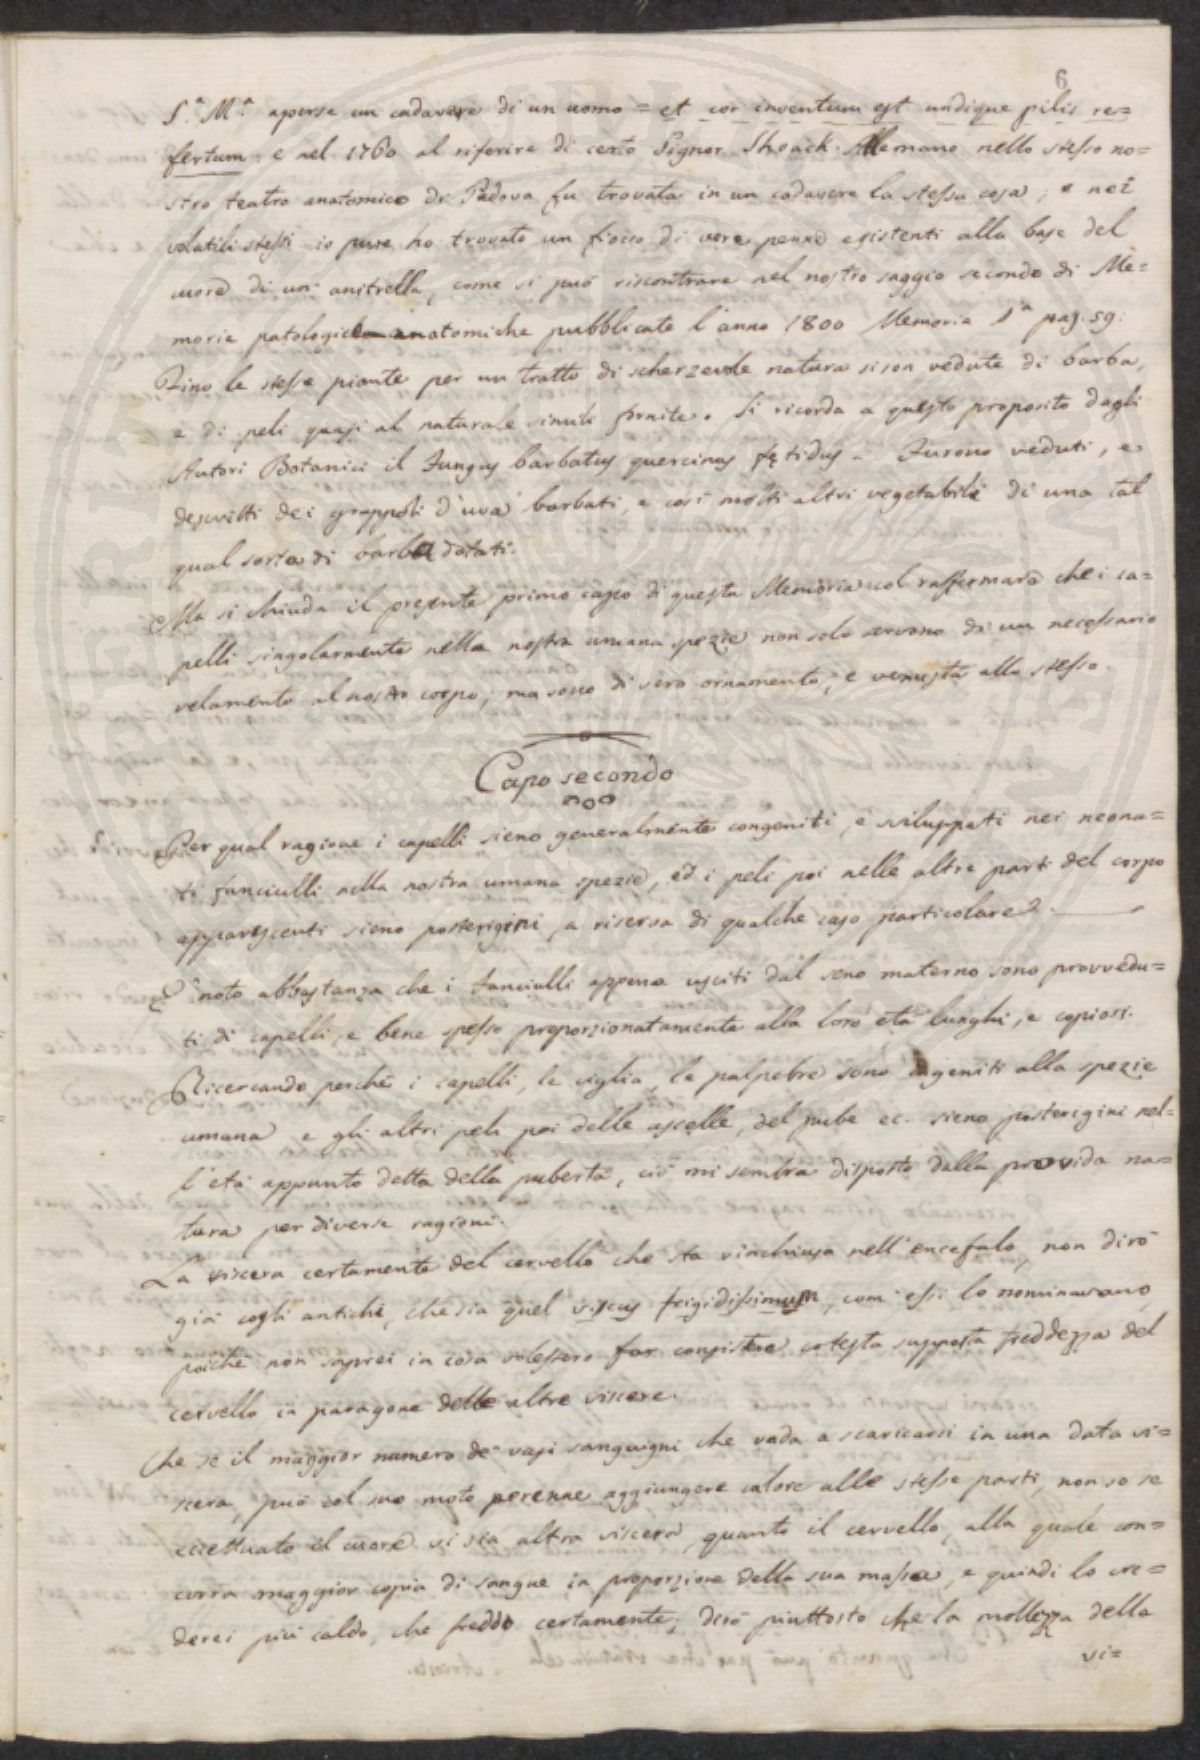 6
S.ª M.ª aperse un cadavere di un uomo = et cor inventum est undique pilis re=
fertum = e nel 1760 al riferire di certo Signor Shoack Allemano nello stesso no=
stro teatro anatomico di Padova fu trovata in un cadavere la stessa cosa; e nei
volatili stessi io pure ho trovato un fiocco di vere penne esistenti alla base del
cuore di un' anitrella, come si può riscontrare nel nostro saggio secondo di Me=
morie patologico-anatomiche pubblicate l'anno 1800 Memoria 1ª pag. 59.
Fino le stesse piante per un tratto di scherzevole natura si son vedute di barba,
e di peli quasi al naturale simili fornite. Si ricorda a questo proposito dagli
Autori Botanici il Fungus barbatus quercinus fętidus = Furono veduti, e
descritti dei grappoli d'uva barbati, e così molti altri vegetabili di una tal
qual sorta di barba dotati.
Ma si chiuda il presente primo capo di questa Memoria col raffermare che i ca=
pelli singolarmente nella nostra umana spezie non solo servono di un necessario
velamento al nostro corpo; ma sono di vero ornamento, e venustà allo stesso.
Capo secondo
Per qual ragione i capelli sieno generalmente congeniti, e sviluppati nei neona=
ti fanciulli nella nostra umana spezie, ed i peli poi nelle altre parti del corpo
apparescenti sieno posterigini, a riserva di qualche caso particolare?
È noto abbastanza che i fanciulli appena usciti dal seno materno sono provvedu=
ti di capelli, e bene spesso proporzionatamente alla loro età lunghi, e copiosi.
Ricercando perchè i capelli, le ciglia, le palpebre sono ingeniti alla spezie
umana e gli altri peli poi delle ascelle, del pube ec. sieno posterigini nel=
l'età appunto detta della pubertà, ciò mi sembra disposto dalla provida na=
tura per diverse ragioni.
La viscera certamente del cervello che sta rinchiusa nell'encefalo, non dirò
già cogli antichi, che sia quel viscus frigidissimum, com' essi lo nominavano,
poichè non saprei in cosa volessero far consistere cotesta supposta freddezza del
cervello in paragone delle altre viscere.
Che se il maggior numero de' vasi sanguigni che vada a scaricarsi in una data vi=
scera, può col suo moto perenne aggiungere calore alle stesse parti, non so se
eccettuato il cuore vi sia altra viscera, quanto il cervello, alla quale con=
corra maggior copia di sangue in proporzione della sua massa, e quindi lo cre=
derei più caldo, che freddo certamente; dirò piuttosto che la mollezza della
vi=